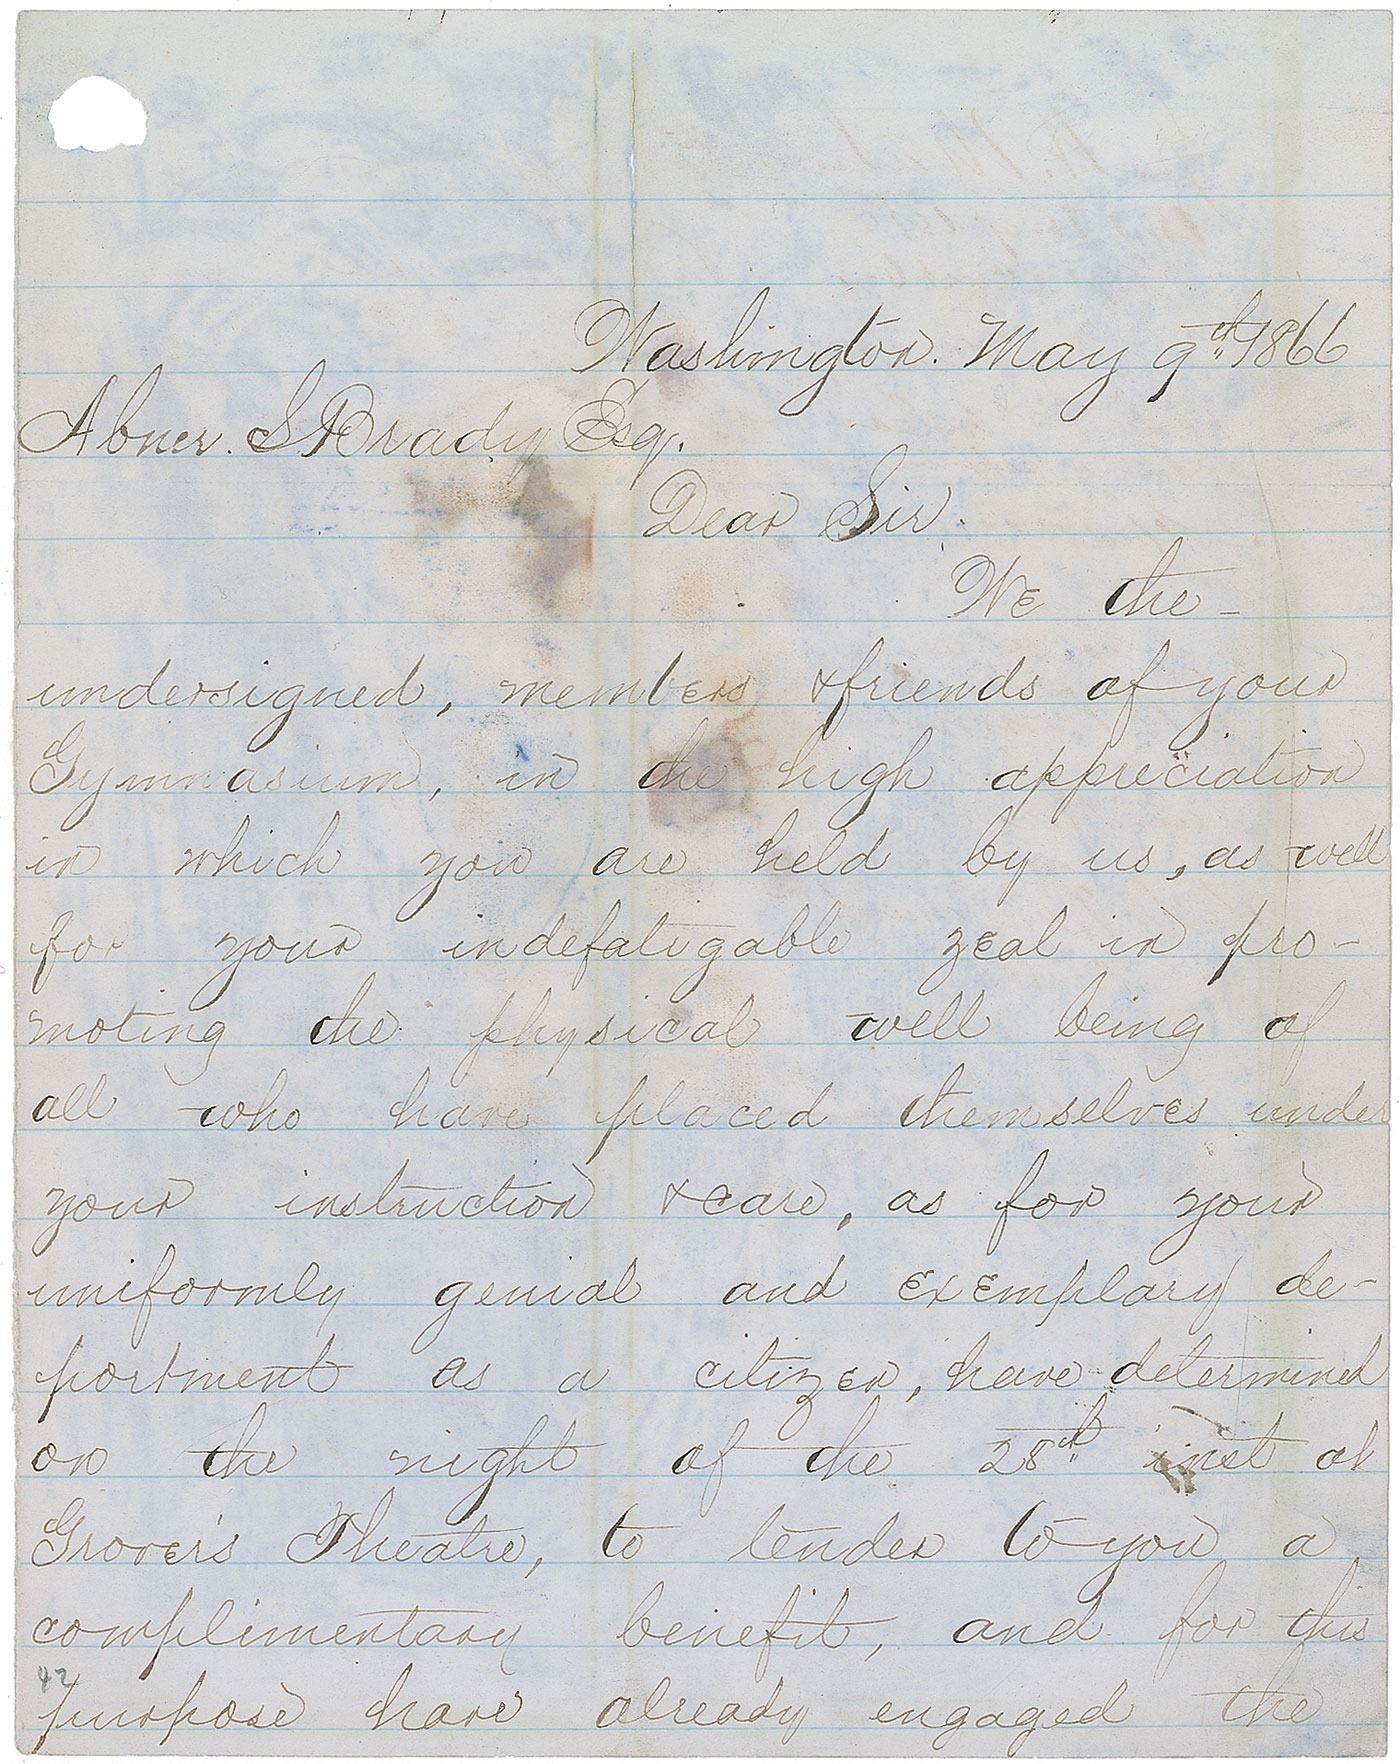 Washington. May 9th 1866
Abner. S. Brady Esq.
Dear Sir.
We the-
undersigned, members & friends of your
Gymnasium, in the high appreciation
in which you are held by us, as well
for your indefatigable zeal in pro-
moting the physical well being of
all who have placed themselves under
your instruction & care, as for your
uniformly genial and exemplary de-
portment as a citizen, have determined
on the night of the 28th inst at
Grover's Theatre, to tender to you a
complimentary benefit, and for this
42
purpose have already engaged the